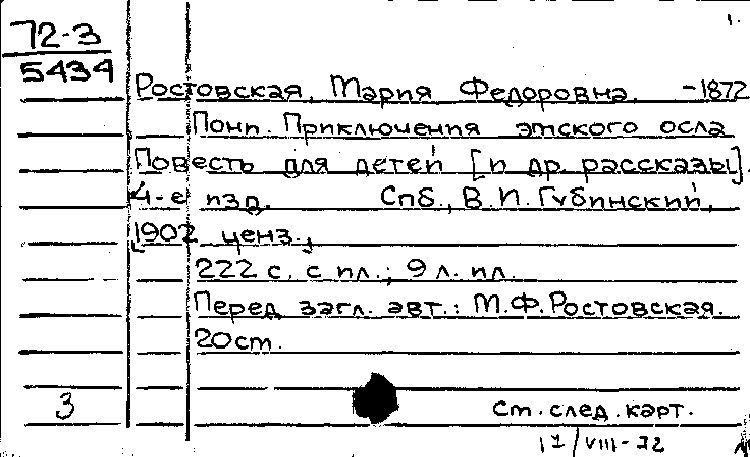 1.
72-3
5434
Ростовская, Мария Федоровна, -1872
Пони. Приключения этского осла
Повесть для детей [и др. рассказы].
4-е изд. Спб., В.И. Губинский,
[1902 ценз.,]
222 с. с ил.; 9 л. ил.
Перед загл. авт.: М.Ф. Ростовская.
20 cm.
3
См. след. карт.
VIII-72